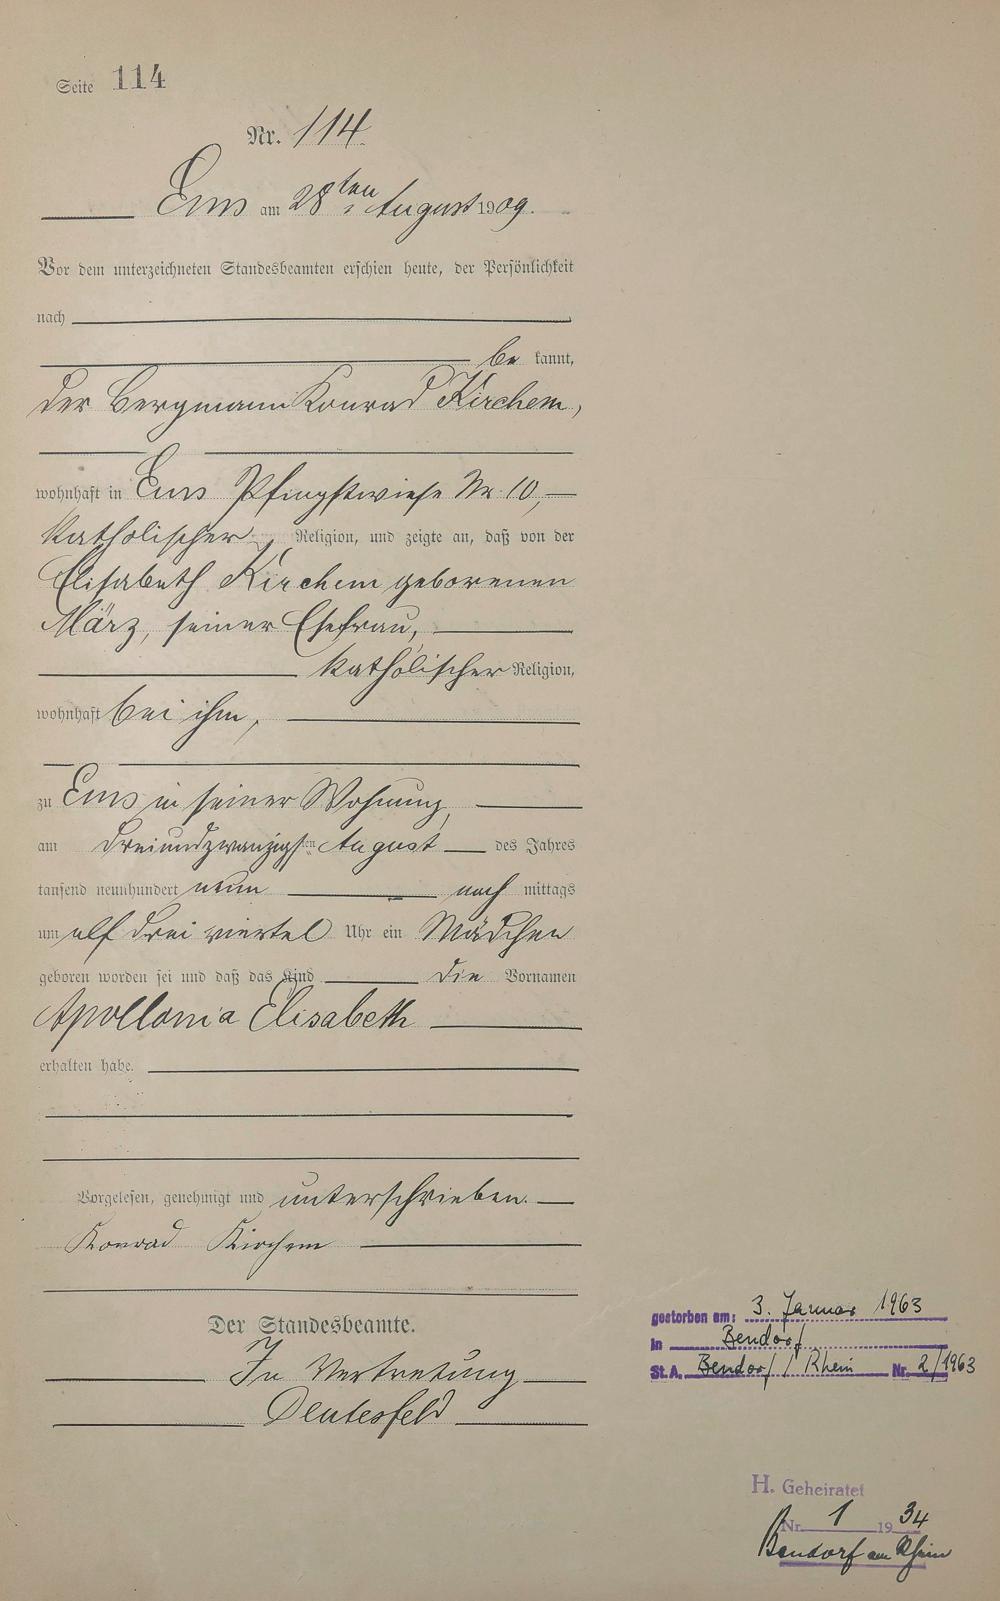 Seite 114
Nr. 114.
Ems am 28ten August 1909.
Vor dem unterzeichneten Standesbeamten erschien heute, der Persönlichkeit
nach
be kannt,
der Bergmann Konrad Kirchem,
wohnhaft in Ems Pfingstwiese Nr. 10,
katholischer Religion, und zeigte an, daß von der
Elisabeth Kirchem geborenen
März, seiner Ehefrau,
katholischer Religion,
wohnhaft bei ihm,
zu Ems in seiner Wohnung,
am dreiundzwanzigsten August des Jahres
tausend neunhundert neun nach mittags
um elf drei viertel Uhr ein Mädchen
geboren worden sei und daß das Kind die Vornamen
Apollonia Elisabeth
erhalten habe.
Vorgelesen, genehmigt und unterschrieben.
Konrad Kirchem
Der Standesbeamte.
In Vertretung
gestorben am: 3. Januar 1963
in Bendorf
St.A. Bendorf / Rhein Nr. 2/1963
H. Geheiratet
Nr. 1 1934
Bendorf am Rhein